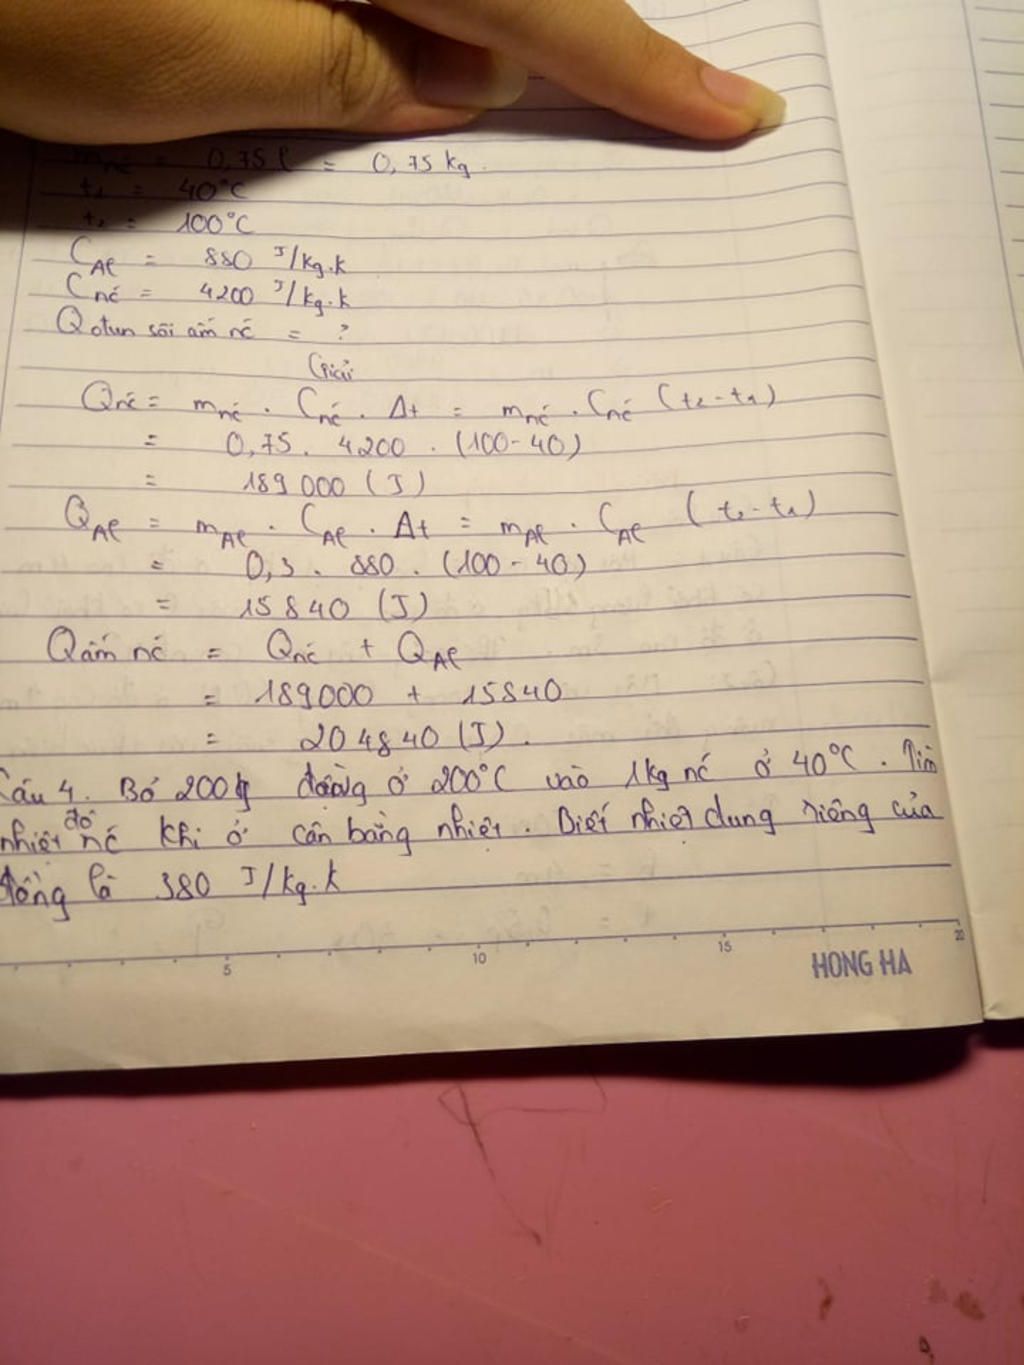 mnć = 0,75 l = 0,75 kg.
t₁ = 40°C
t₂ = 100°C
CAl = 880 J/kg.k
Cnć = 4200 J/kg.k
Qđun sôi ấm nć = ?
Giải
Qnć = mnć . Cnć . Δt = mnć . Cnć (t₂ - t₁)
= 0,75 . 4200 . (100 - 40)
= 189000 (J)
QAl = mAl . CAl . Δt = mAl . CAl (t₂ - t₁)
= 0,3 . 880 . (100 - 40)
= 15840 (J)
Qấm nć = Qnć + QAl
= 189000 + 15840
= 204840 (J).
Câu 4. Bỏ 200g đồng ở 200°C vào 1kg nć ở 40°C. Tìm
nhiệt độ nć khi ở cân bằng nhiệt. Biết nhiệt dung riêng của
đồng là 380 J/kg.k
5 10 15 20
HONG HA